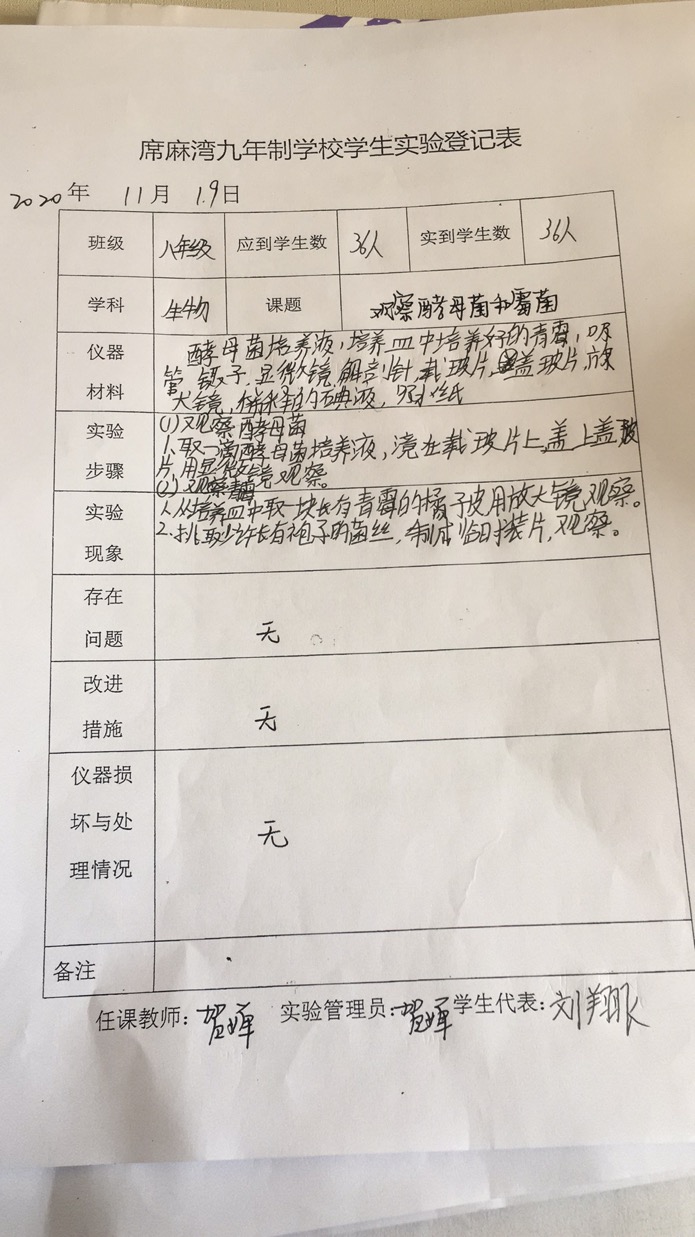 席麻湾九年制学校学生实验登记表
2020年 11月 19日
班级 八年级 应到学生数 36人 实到学生数 36人
学科 生物 课题 观察酵母菌和霉菌
仪器材料
酵母菌培养液,培养皿中培养好的青霉,吸
管,镊子,显微镜,解剖针,载玻片,盖玻片,放
大镜,稀释的碘液,吸水纸
实验步骤
(1)观察酵母菌
1、取一滴酵母菌培养液,滴在载玻片上,盖上盖玻
片,用显微镜观察。
(2)观察青霉
实验现象
1.从培养皿中取一块长有青霉的橘子皮用放大镜观察。
2.挑取少许长有孢子的菌丝,制成临时装片,观察。
存在问题
无
改进措施
无
仪器损坏与处理情况
无
备注
任课教师:贺婵 实验管理员:贺婵 学生代表:刘翔